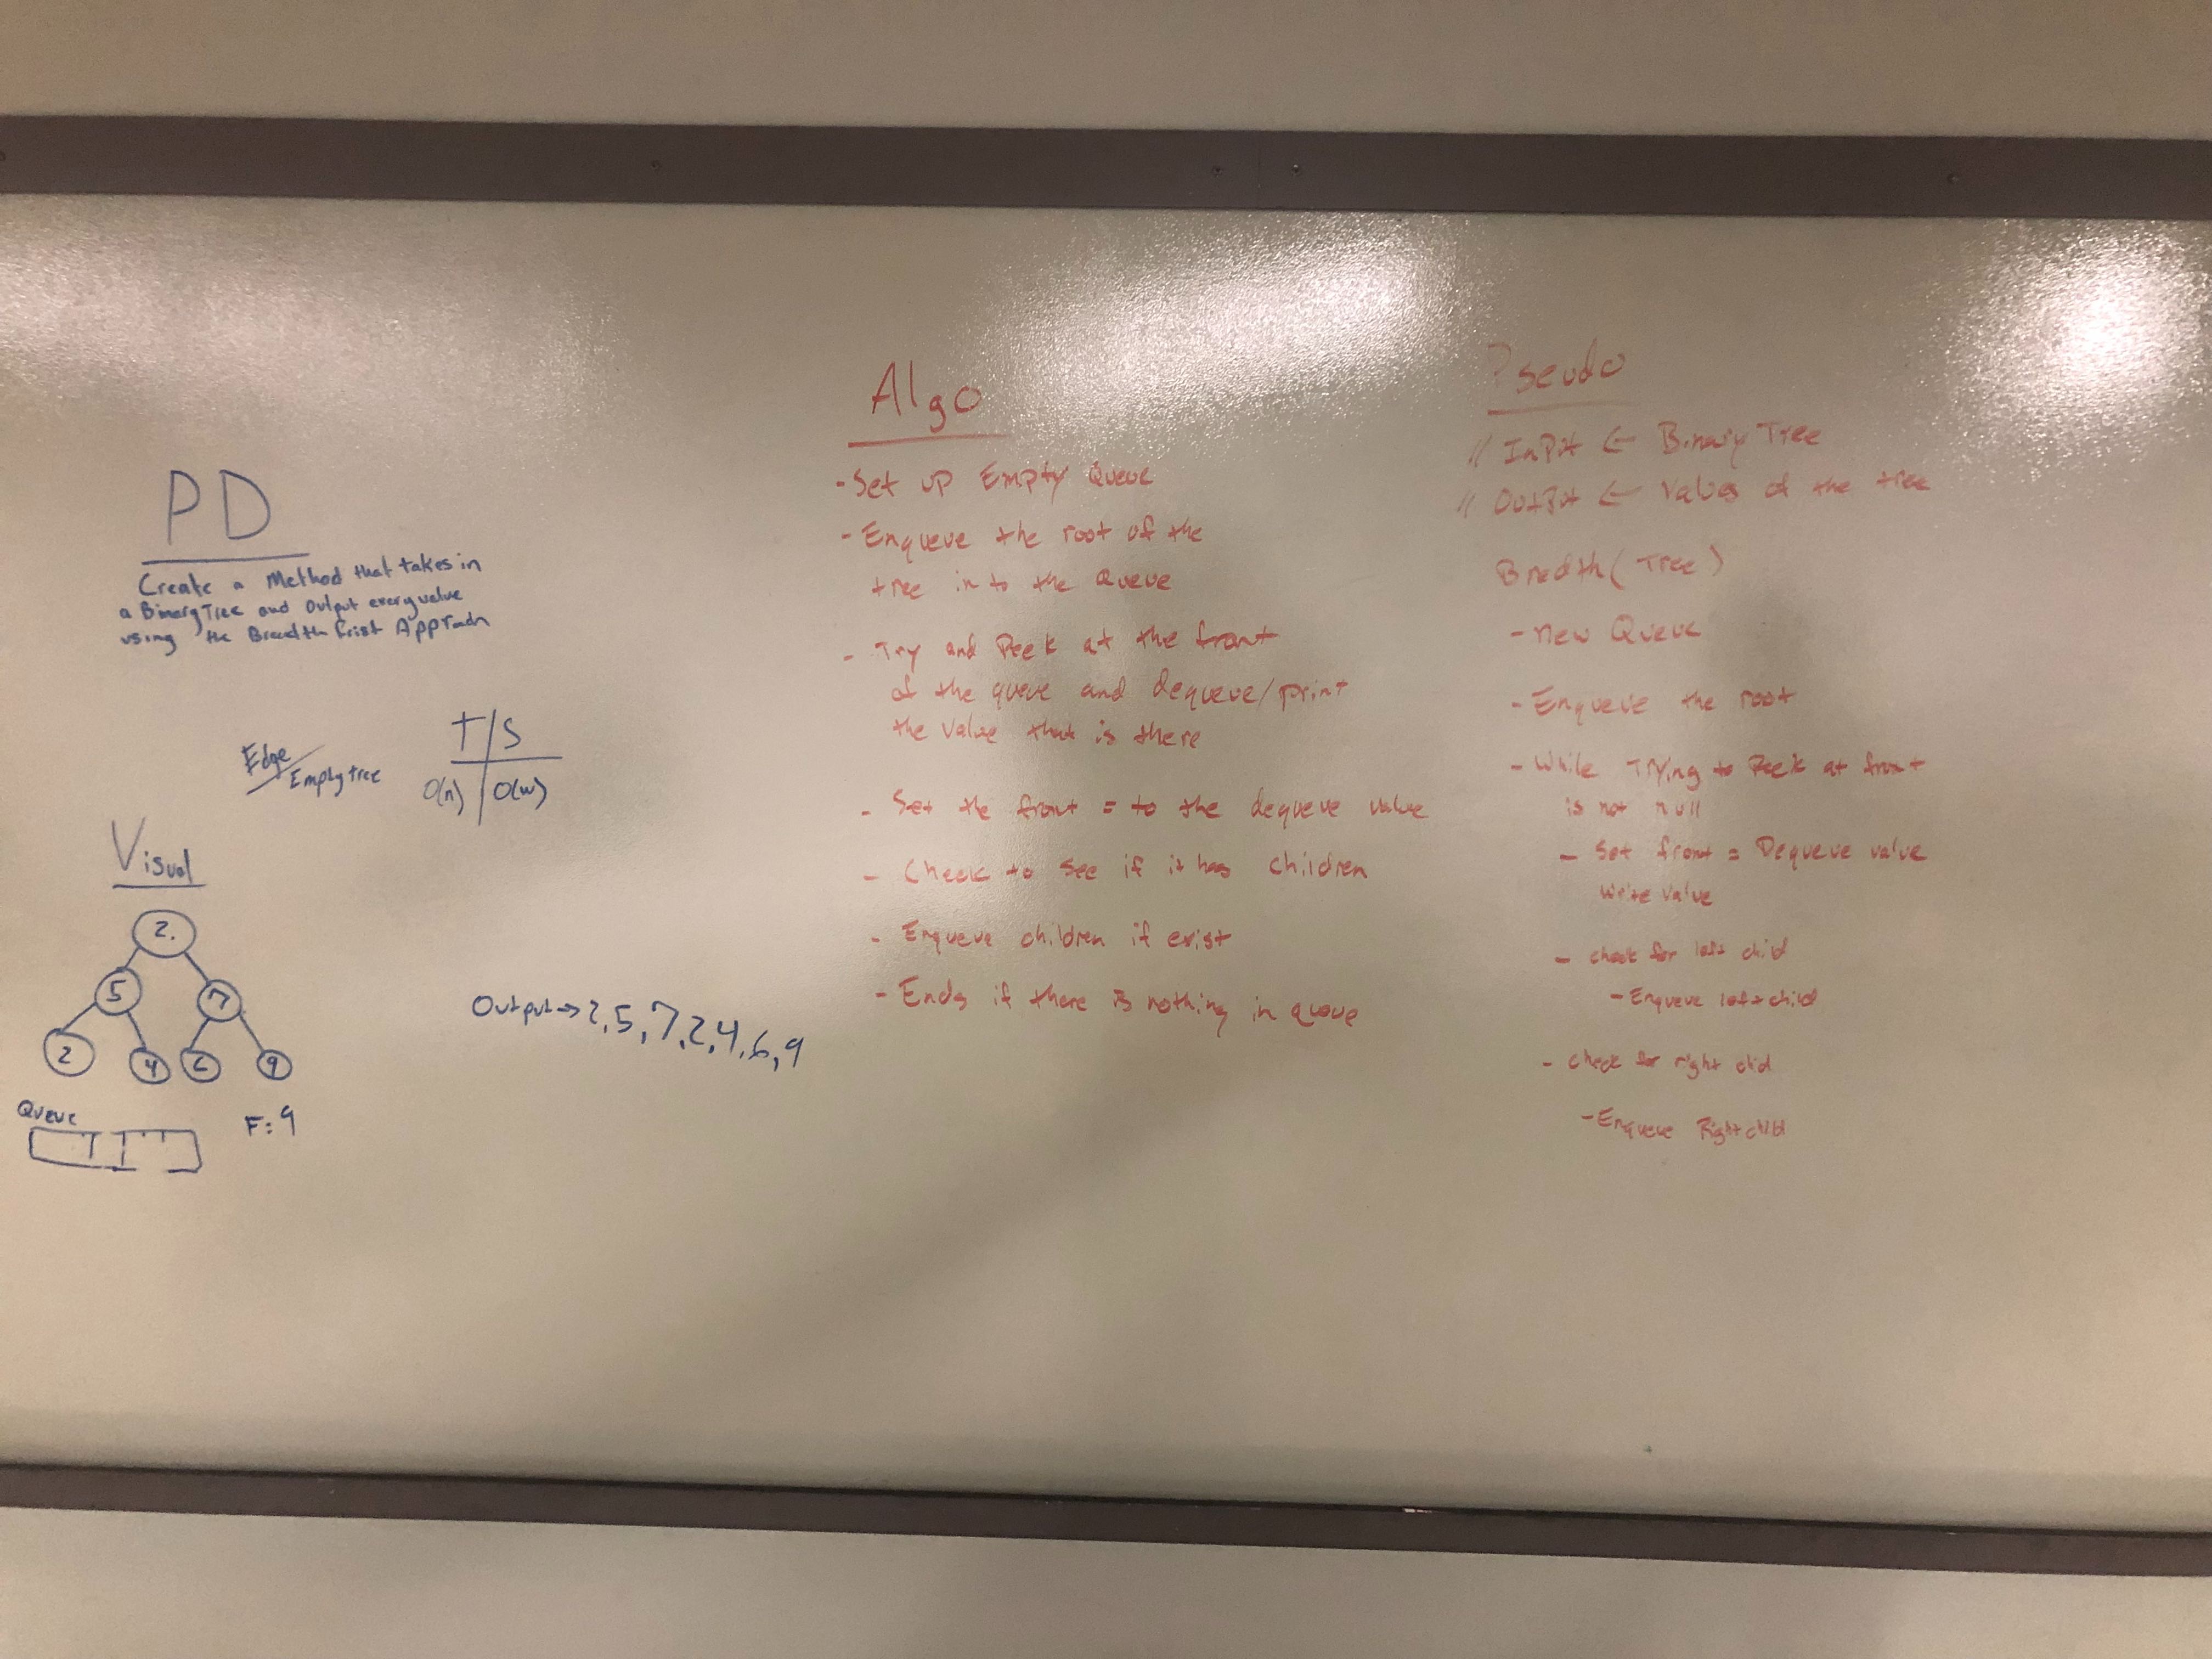 PD
Create a Method that takes in
a Binary Tree and Output every value
using the Breadth Frist Approach
Edge/Empty tree
T/S
O(n) O(w)
Visual
2.
5 7
2 4 6 9
Queue
F: 9
Output→2,5,7,2,4,6,9
Algo
-Set up Empty Queue
-Enqueue the root of the
tree in to the Queue
- Try and Peek at the front
of the queue and dequeue/print
the value that is there
- Set the front = to the dequeue value
- Check to see if it has children
- Enqueue children if exist
- Ends if there is nothing in queue
Pseudo
// InPut ← Binary Tree
// OutPut ← Values of the tree
Bredth(Tree)
- new Queue
- Enqueue the root
- While Trying to Peek at front
is not null
- Set front = Dequeue value
Write value
- check for left child
- Enqueue left child
- check for right clid
- Enqueue Right child